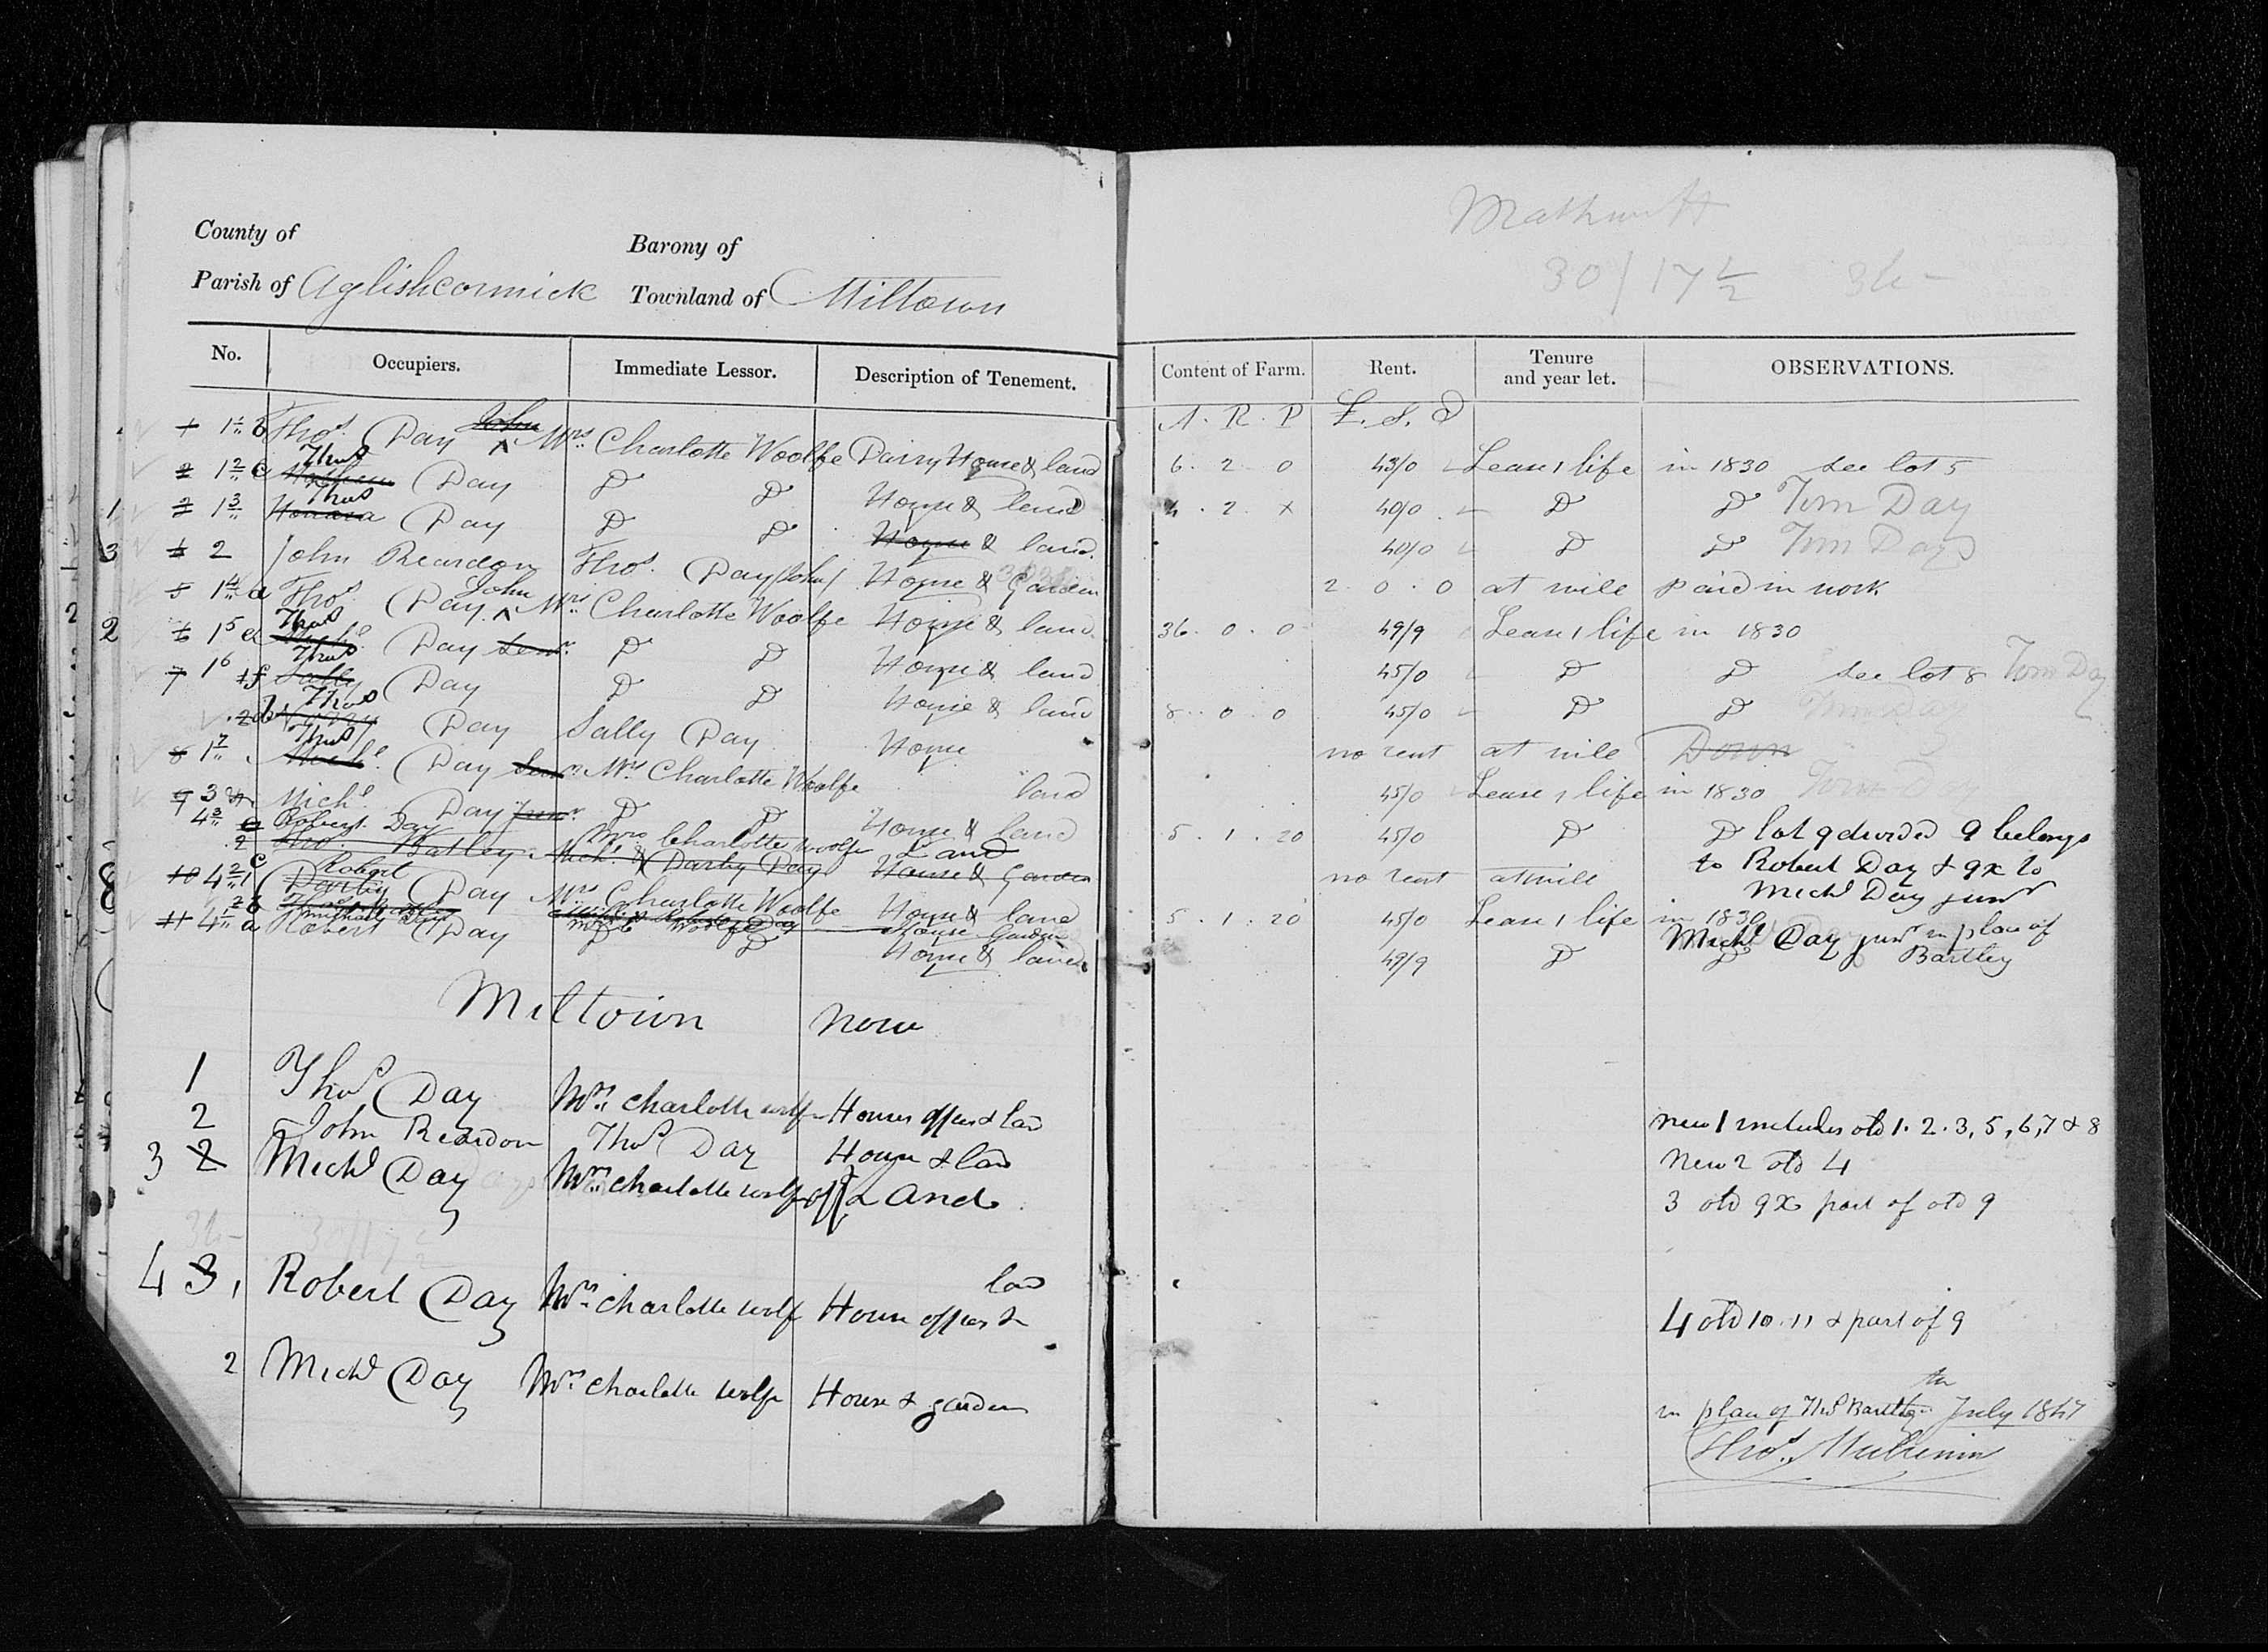 County of
Barony of
Parish of Aglishcormick Townland of Miltown
No. Occupiers. Immediate Lessor. Description of Tenement. Content of Farm. Rent. Tenure and year let. OBSERVATIONS.
A. R. P £. S. D
1 1 b Thos. Day John Mrs. Charlotte Woolfe Dairy House & land 6. 2. 0 43/0 Lease 1 life in 1830 see lot 5
2 1 2 c Thos Day D D House & land 4. 2. x 40/0 D D Tom Day
1 3 1 3 Thos Honara Day D D House & land. 40/0 D D Tom Day
3 4 2 John Reardon Thos. Day (John) House & Garden 2. 0. 0 at will paid in work
5 1 4 a Thos. Day John Mrs. Charlotte Woolfe House & land 36. 0. 0 49/9 Lease 1 life in 1830
2 6 1 5 Thos Michl. Day Senr. D D House & land 45/0 D D see lot 8 Tom Day
7 1 6 f Thos Sally Day D D House & land 8. 0. 0 45/0 D D Tom Day
2 Thos Day Sally Day House no rent at will Down
8 1 7 Thos Michl. Day Senr. Mrs Charlotte Woolfe land 45/0 Lease 1 life in 1830
9 3 Michl. Day Junr. D D House & land 5. 1. 20 45/0 D D lot 9 divided 9 belongs
4 3 Robert Day Mrs Charlotte Woolfe Land to Robert Day & 9x to
2 Thos. Bartley Michl. & Darby Day House & Garden no rent at will Michl Day junr
10 4 2 c Robert Darby Day Mrs. Charlotte Woolfe House & land 5. 1. 20 45/0 Lease 1 life in 1830
2 b Michael Day Mrs C Woolfe House Garden Michl Day junr in place of
11 4 a Robert Day D D House & land 49/9 D D Bartley
Miltown now
1 Thos Day Mrs. Charlotte Wolfe Houses offices & land new 1 includes old 1. 2. 3, 5, 6, 7 & 8
2 John Reardon Thos Day House & land New 2 old 4
3 2 Michl Day Mrs. Charlotte Wolfe off Land 3 old 9x part of old 9
4 3, Robert Day Mrs. Charlotte Wolfe House offices & land 4 old 10. 11 & part of 9
2 Michl Day Mrs. Charlotte Wolfe House & garden in place of Thos Bartley July 1847